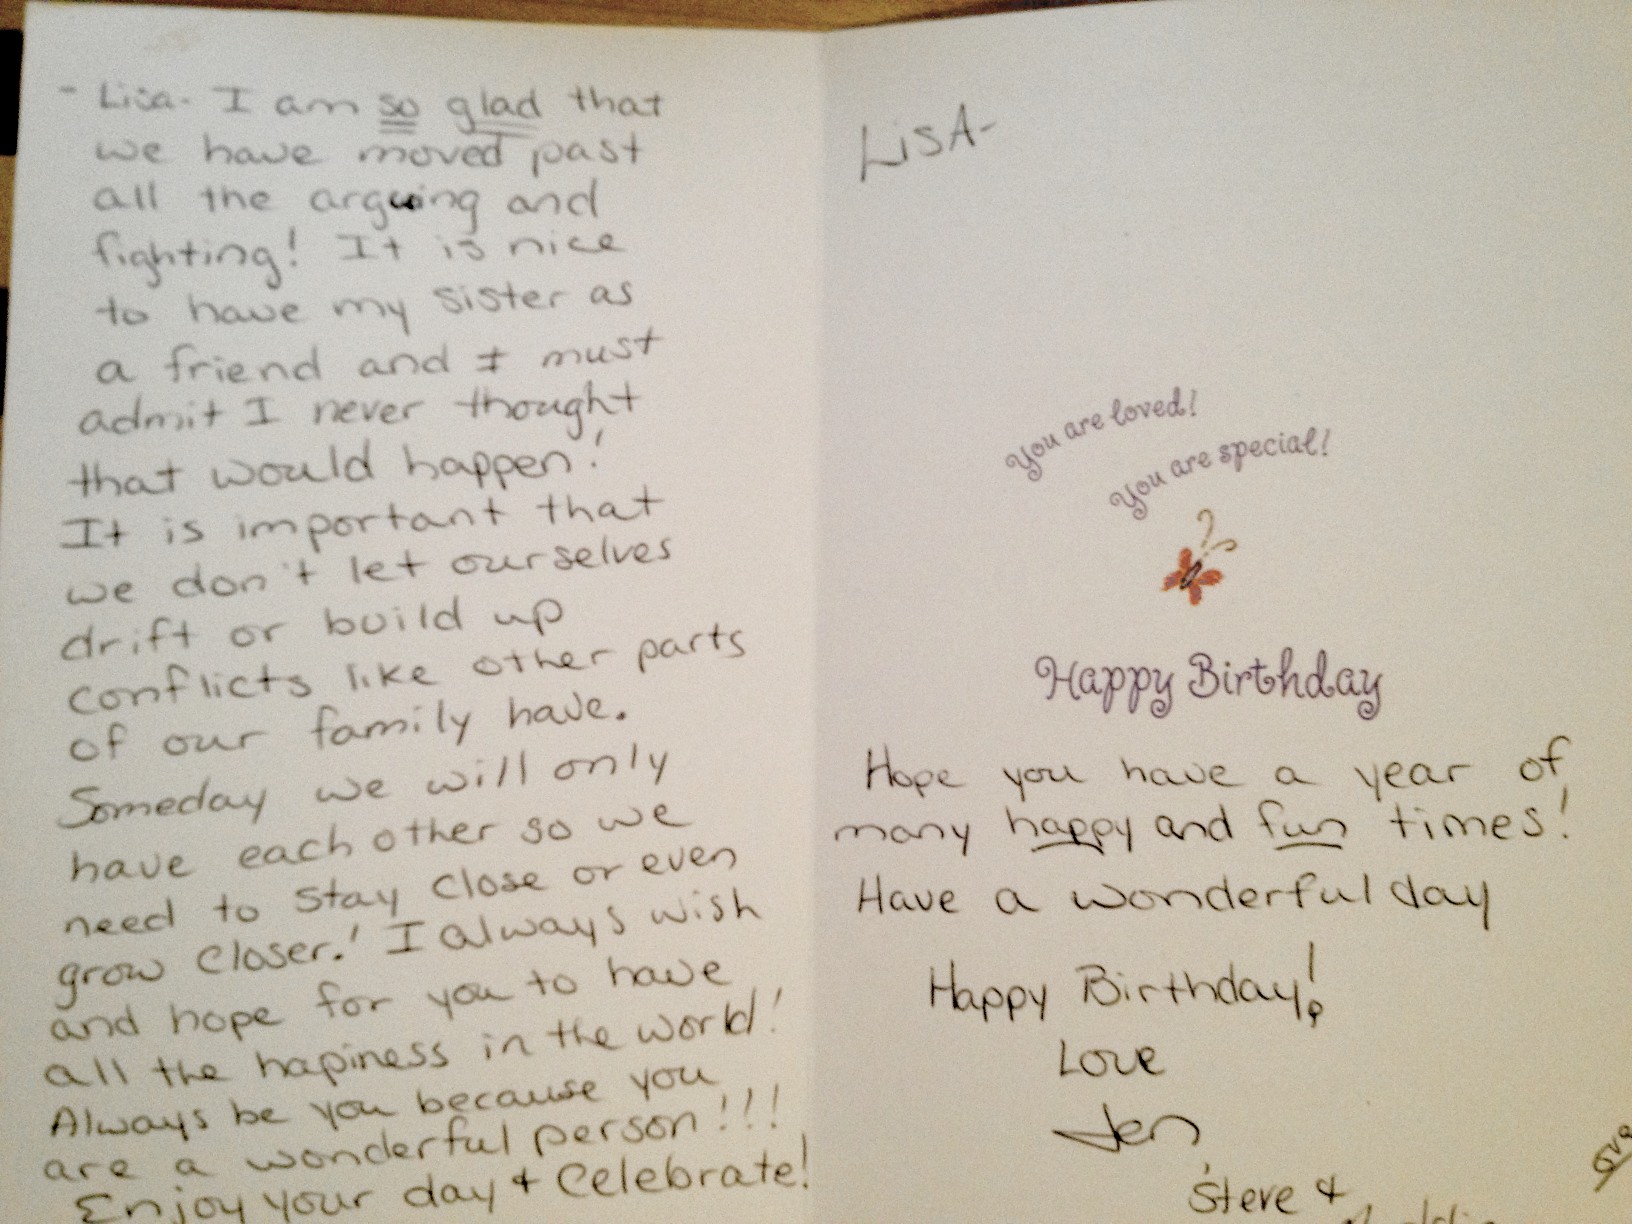 - Lisa- I am so glad that
we have moved past
all the arguing and
fighting! It is nice
to have my sister as
a friend and I must
admit I never thought
that would happen!
It is important that
we don't let ourselves
drift or build up
conflicts like other parts
of our family have.
Someday we will only
have each other so we
need to stay close or even
grow closer! I always wish
and hope for you to have
all the hapiness in the world!
Always be you because you
are a wonderful person!!!
Enjoy your day + Celebrate!
LisA-
You are loved!
You are special!
Happy Birthday
Hope you have a year of
many happy and fun times!
Have a wonderful day
Happy Birthday!
Love
Jen
Steve +